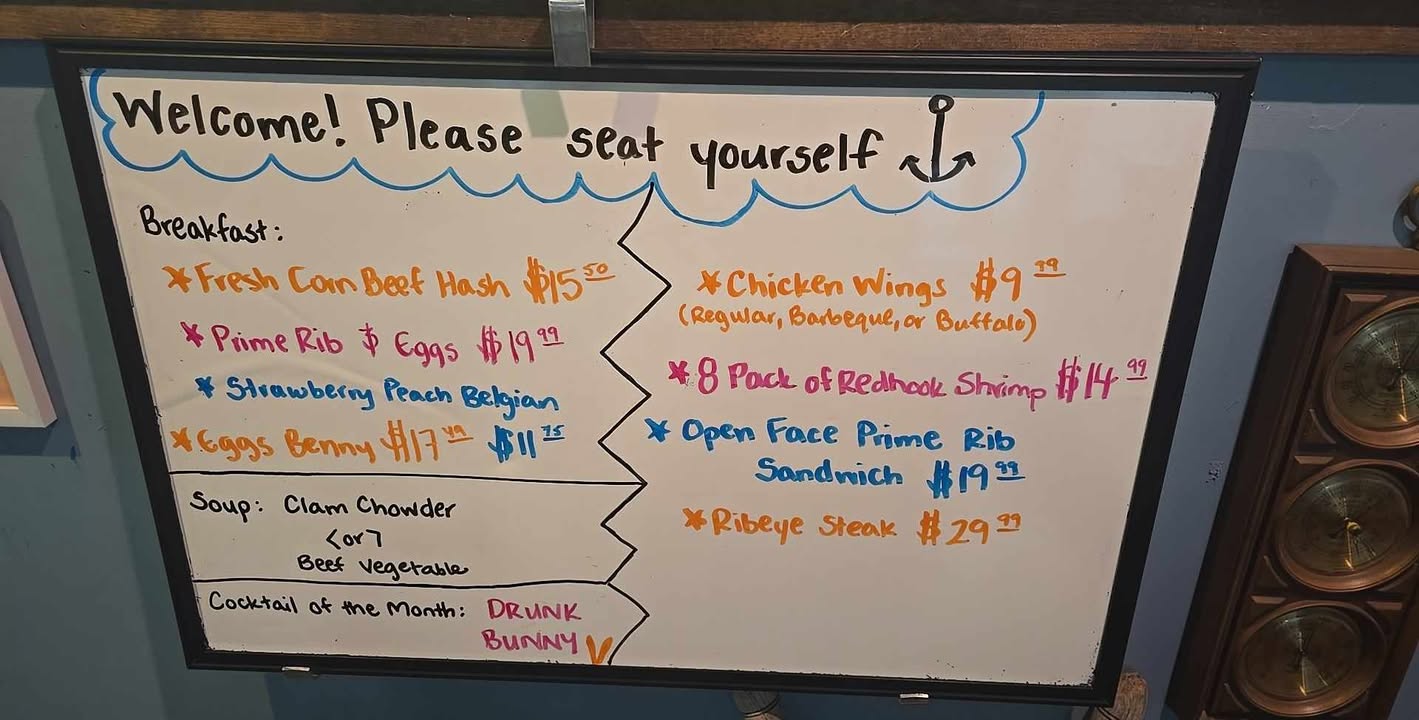 Welcome! Please seat yourself
Breakfast:
* Fresh Corn Beef Hash $15 50
* Prime Rib $ Eggs $19 99
* Strawberry Peach Belgian
* Eggs Benny $17 49 $11 75
Soup: Clam Chowder
<or>
Beef Vegetable
Cocktail of the Month: DRUNK
BUNNY
* Chicken Wings $9 99
(Regular, Barbeque, or Buffalo)
* 8 Pack of Redhook Shrimp $14 99
* Open Face Prime Rib
Sandwich $19 99
* Ribeye Steak $29 99